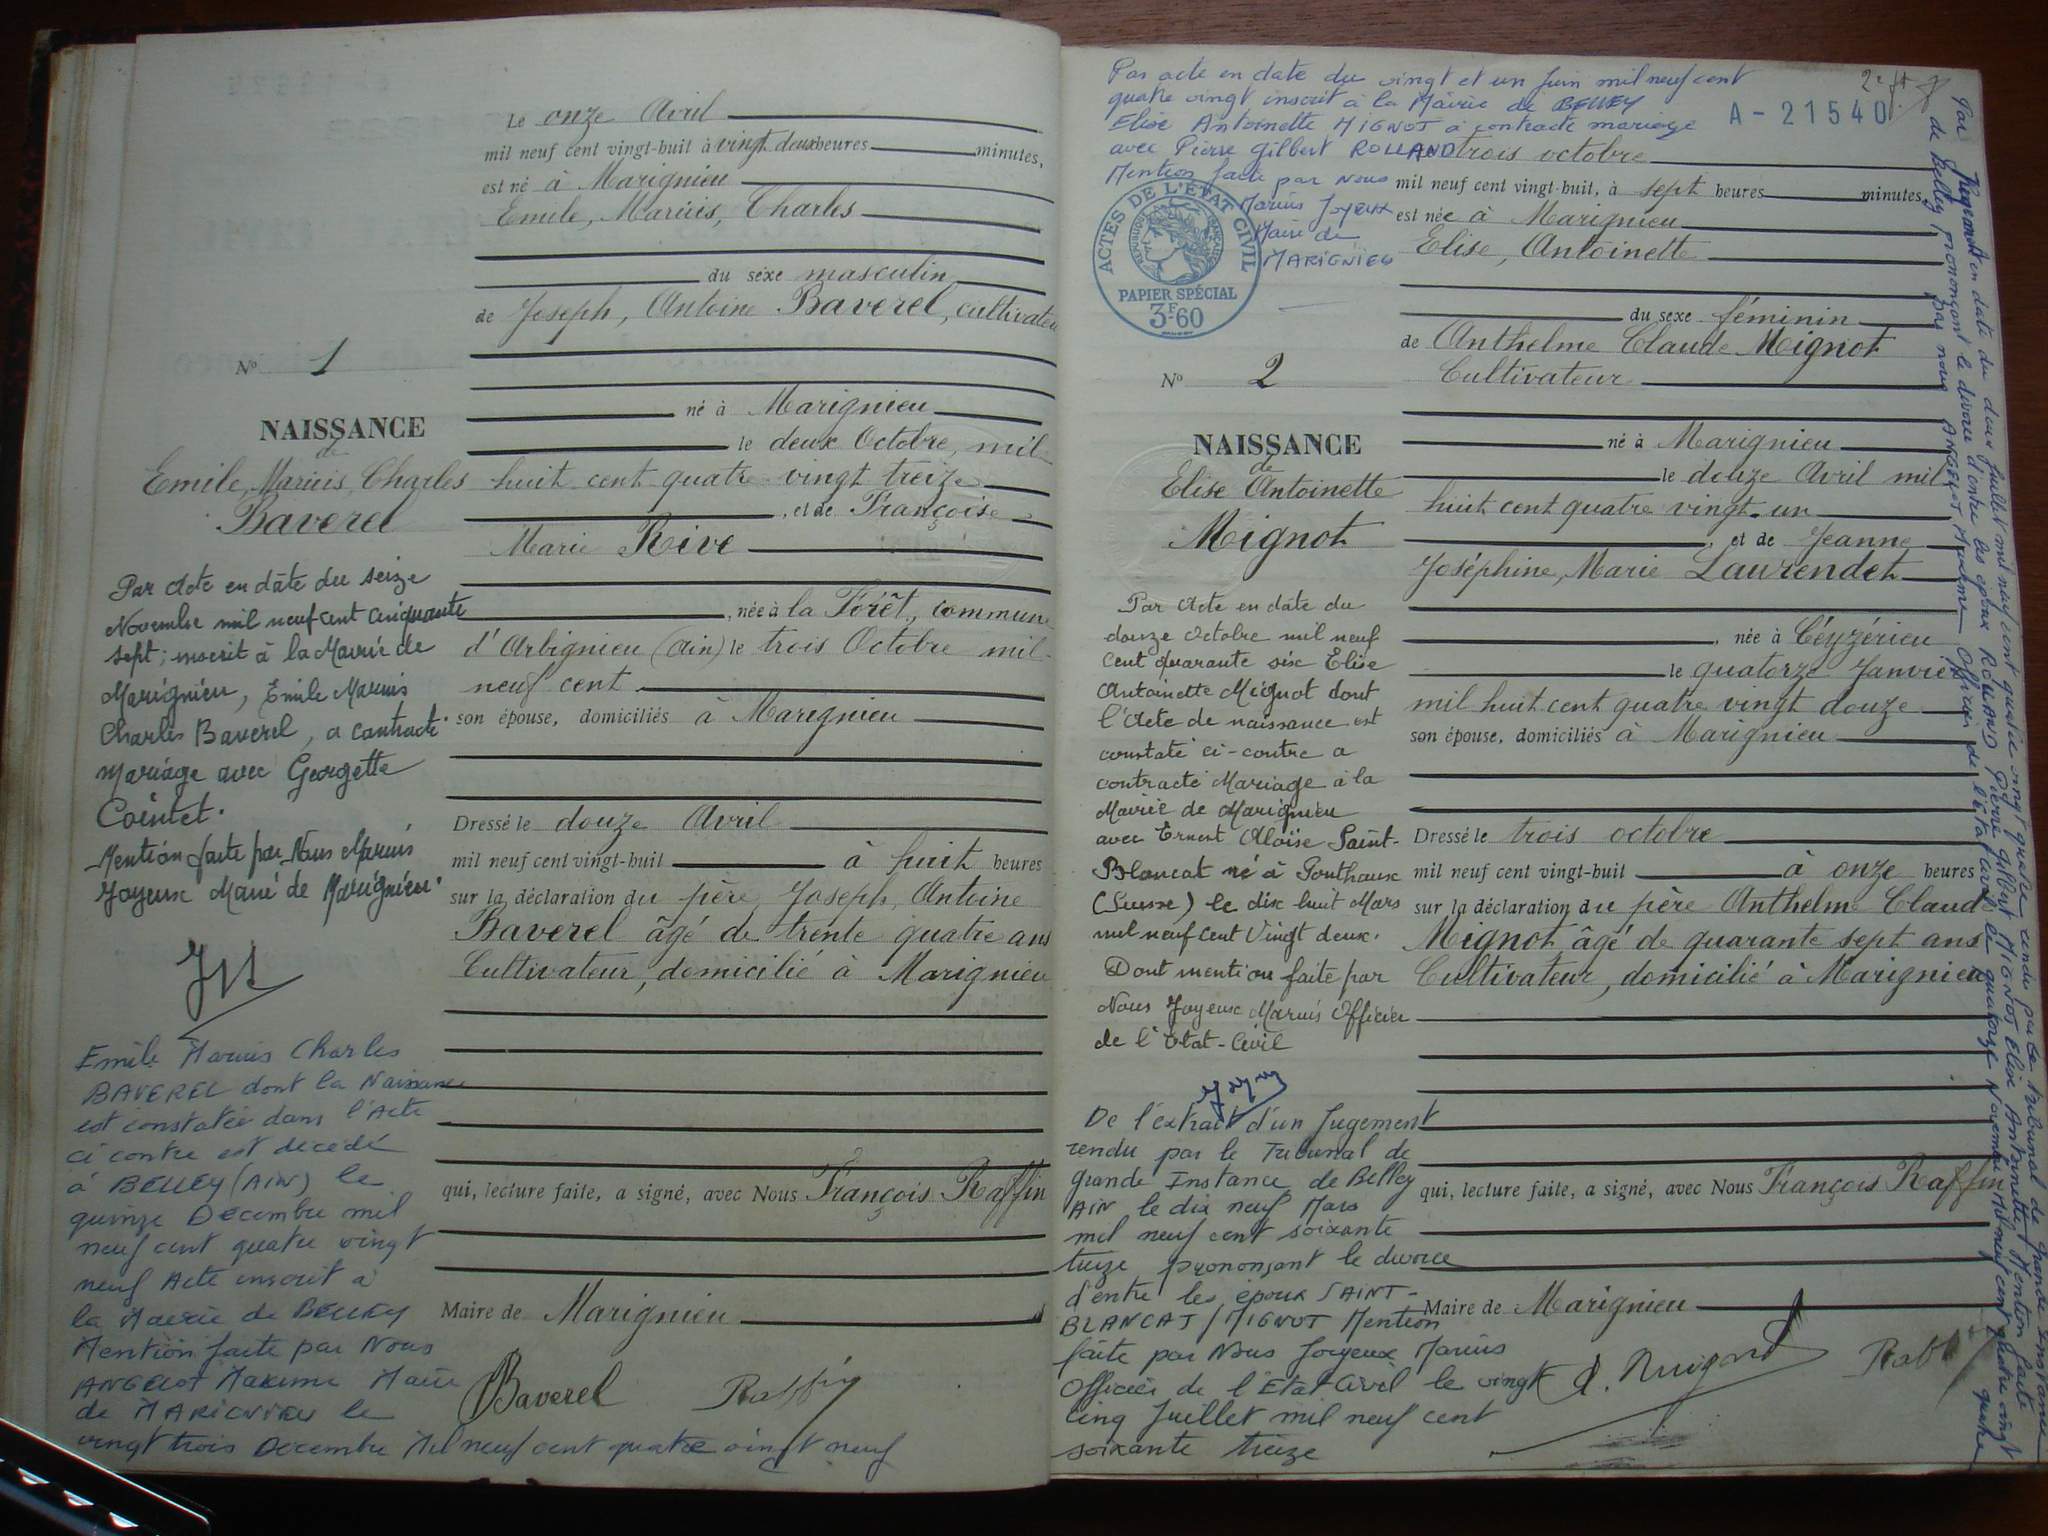 Le onze Avril
mil neuf cent vingt-huit à vingt deux heures minutes,
est né à Marignieu
Emile, Marius, Charles
du sexe masculin
de Joseph, Antoine Baverel, cultivateur
né à Marignieu
le deux Octobre, mil
huit cent quatre vingt treize
, et de Françoise
Marie Rive
, née à la Forêt, commune
d'Arbignieu (Ain) le trois Octobre mil
neuf cent
son épouse, domiciliés à Marignieu
Dressé le douze Avril
mil neuf cent vingt-huit à huit heures
sur la déclaration du père, Joseph, Antoine
Baverel âgé de trente quatre ans
Cultivateur, domicilié à Marignieu
qui, lecture faite, a signé, avec Nous François Raffin
Maire de Marignieu
Baverel Raffin
No 1
NAISSANCE
de
Emile, Marius, Charles
Baverel
Par Acte en date du seize
Novembre mil neuf cent cinquante
sept; inscrit à la Mairie de
Marignieu, Emile Marius
Charles Baverel, a contracté
mariage avec Georgette
Cointet.
Mention faite par Nous Marius
Joyeux Maire de Marignieu.
Emile Marius Charles
BAVEREL dont la Naissance
est constatée dans l'Acte
ci contre est décédé
à BELLEY (AIN) le
quinze Decembre mil
neuf cent quatre vingt
neuf Acte inscrit à
la Mairie de BELLEY
Mention faite par Nous
ANGELOT Maxime Maire
de MARIGNIEU le
vingt trois Decembre Mil neuf cent quatre vingt neuf
Par acte en date du vingt et un Juin mil neuf cent
quatre vingt inscrit à la Mairie de BELLEY
Elise Antoinette MIGNOT a contracté mariage
avec Pierre Gilbert ROLLAND
Mention faite par Nous
Marius Joyeux
Maire de
MARIGNIEU
A-21540
ACTES DE L'ETAT CIVIL
REPUBLIQUE FRANÇAISE
PAPIER SPÉCIAL
3F-60
trois octobre
mil neuf cent vingt-huit, à sept heures minutes,
est née à Marignieu
Elise, Antoinette
du sexe féminin
de Anthelme Claude Mignot
Cultivateur
né à Marignieu
le douze Avril mil
huit cent quatre vingt un
, et de Jeanne
Joséphine, Marie Laurendet
, née à Céyzérieu
le quatorze Janvier
mil huit cent quatre vingt douze
son épouse, domiciliés à Marignieu
Dressé le trois octobre
mil neuf cent vingt-huit à onze heures
sur la déclaration du père Anthelme Claude
Mignot âgé de quarante sept ans
Cultivateur, domicilié à Marignieu
qui, lecture faite, a signé, avec Nous François Raffin
Maire de Marignieu
No 2
NAISSANCE
de
Elise Antoinette
Mignot
Par Acte en date du
douze octobre mil neuf
cent quarante six Elise
Antoinette Mignot dont
l'Acte de naissance est
constaté ci-contre a
contracté Mariage à la
Mairie de Marignieu
avec Ernest Aloïse Saint-
Blancat né à Ponthaux
(Suisse) le dix huit Mars
mil neuf cent Vingt deux.
Dont mention faite par
Nous Joyeux Marius Officier
de l'Etat-Civil
De l'extrait d'un Jugement
rendu par le Tribunal de
grande Instance de Belley
AIN le dix neuf Mars
mil neuf cent soixante
treize prononçant le divorce
d'entre les époux SAINT-
BLANCAT / MIGNOT Mention
faite par Nous Joyeux Marius
Officier de l'Etat Civil le vingt
cinq Juillet mil neuf cent
soixante treize
Par Jugement en date du deux Juillet mil neuf cent quatre vingt quatre rendu par le Tribunal de grande Instance
de Belley prononçant le divorce d'entre les époux ROLLAND Pierre Gilbert MIGNOT Elise Antoinette Mention faite
Par nous ANGELOT Maxime Officier de l'état civil le quatorze Novembre Mil neuf cent quatre vingt
quatre